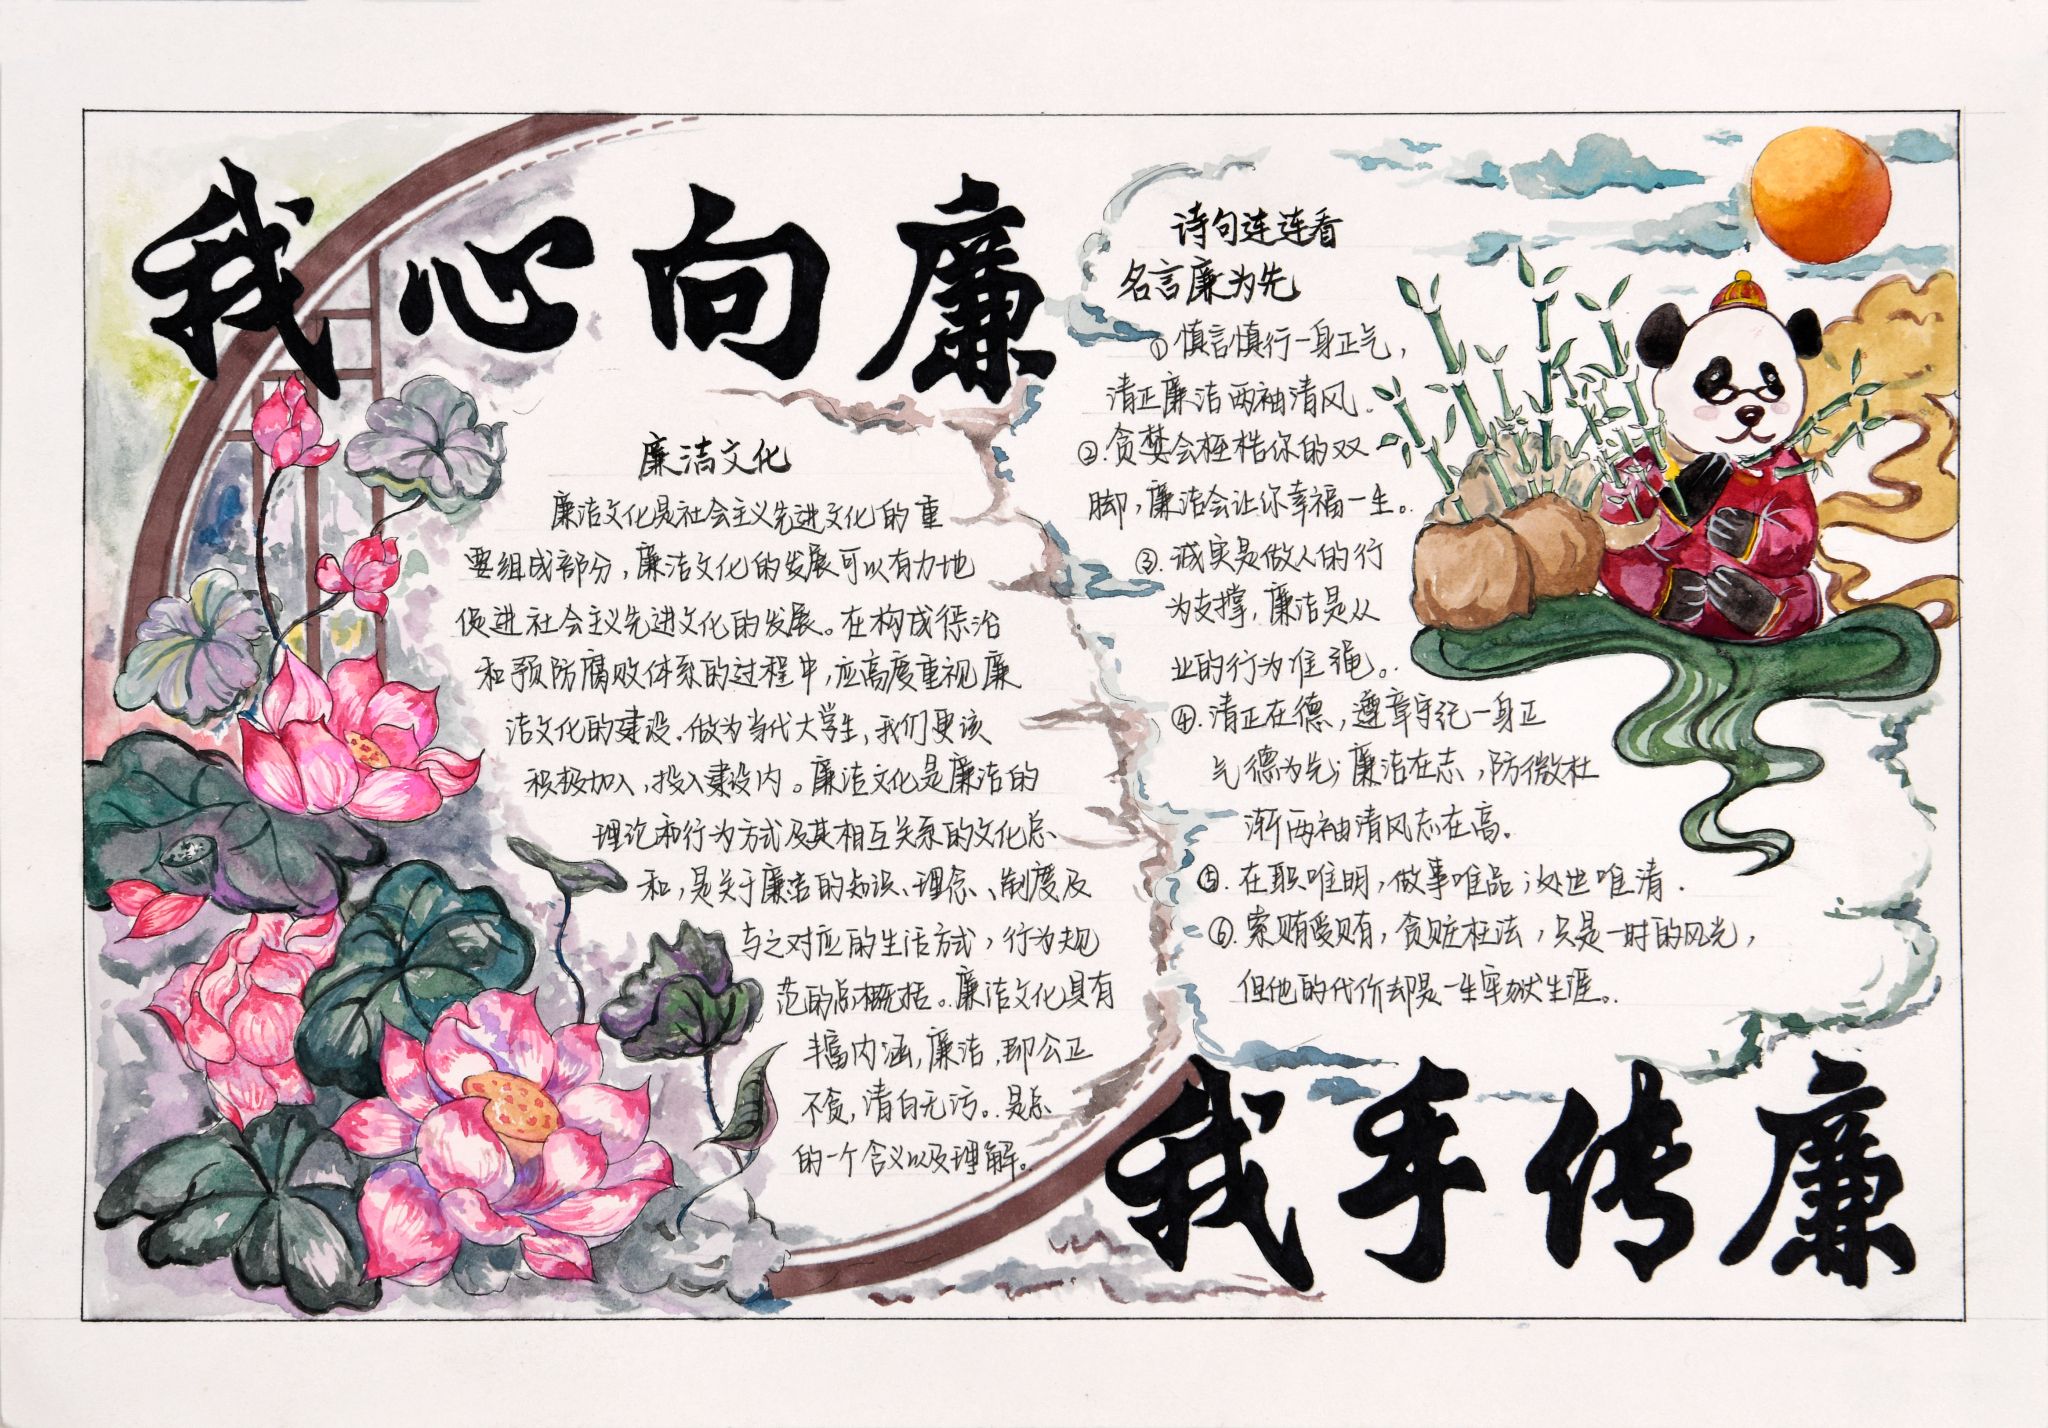 我心向廉
廉洁文化
廉洁文化是社会主义先进文化的重
要组成部分，廉洁文化的发展可以有力地
促进社会主义先进文化的发展。在构成惩治
和预防腐败体系的过程中，应高度重视廉
洁文化的建设．做为当代大学生，我们更该
积极加入，投入建设内。廉洁文化是廉洁的
理论和行为方式及其相互关系的文化总
和，是关于廉洁的知识、理念、制度及
与之对应的生活方式，行为规
范的总概括。廉洁文化具有
丰富内涵，廉洁，即公正
不贪，清白无污。是总
的一个含义以及理解。
诗句连连看
名言廉为先
①慎言慎行一身正气，
清正廉洁两袖清风．
②.贪婪会桎梏你的双
脚，廉洁会让你幸福一生。
③.诚实是做人的行
为支撑，廉洁是从
业的行为准绳。
④.清正在德，遵章守纪一身正
气德为先；廉洁在志，防微杜
渐两袖清风志在高。
⑤.在职唯明，做事唯品；处世唯清．
⑥.索贿受贿，贪赃枉法，只是一时的风光，
但他的代价却是一生牢狱生涯。
我手传廉